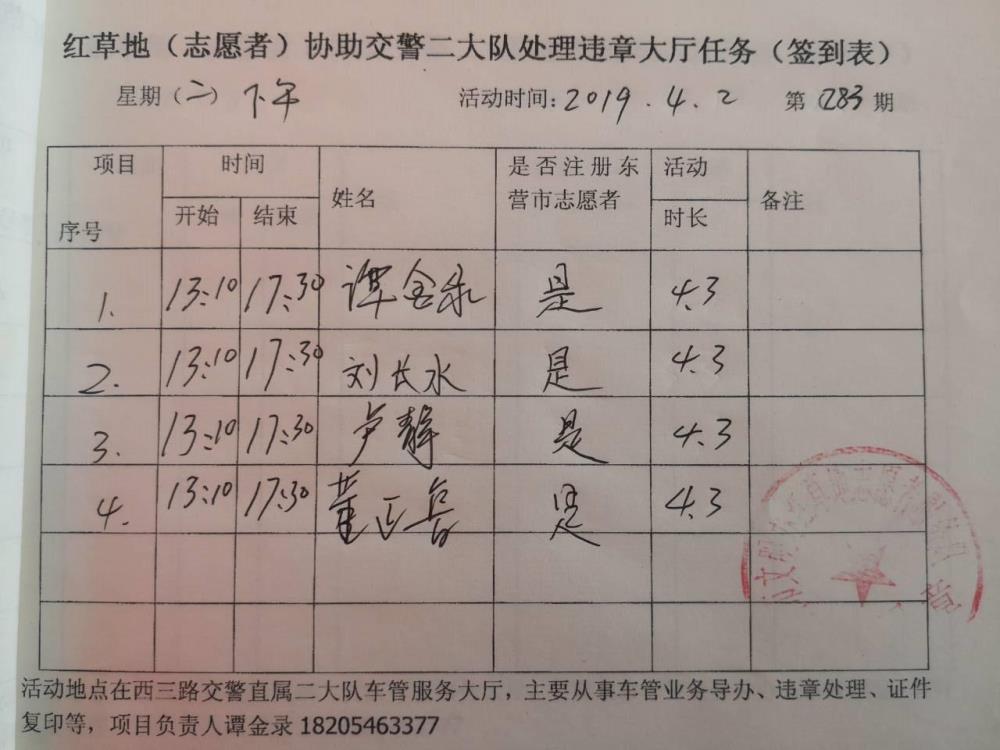 红草地（志愿者）协助交警二大队处理违章大厅任务（签到表）
星期（二）下午 活动时间：2019.4.2 第283期
项目 时间 姓名 是否注册东营市志愿者 活动时长 备注
序号 开始 结束
1. 13:10 17:30 谭金录 是 4.3
2. 13:10 17:30 刘长水 是 4.3
3. 13:10 17:30 卢静 是 4.3
4. 13:10 17:30 董正 是 4.3
活动地点在西三路交警直属二大队车管服务大厅，主要从事车管业务导办、违章处理、证件
复印等，项目负责人谭金录 18205463377